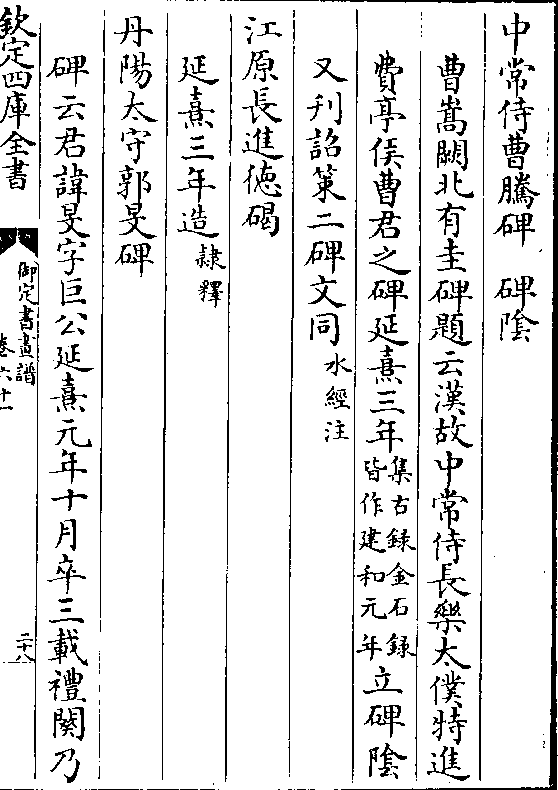 中常侍曹騰碑　碑陰
曹嵩闕北有圭碑題云漢故中常侍長樂太僕特進
費亭侯曹君之碑延熹三年集古録金石録皆作建和元年立碑陰
又刋詔策二碑文同水經注
江原長進徳碣
延熹三年造隷釋
丹陽太守郭旻碑
碑云君諱旻字巨公延熹元年十月卒三載禮闋乃
欽定四庫全書
御定書畫譜
卷六十一
二十八